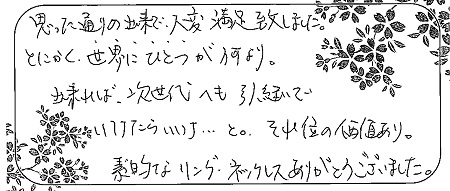 思った通りの出来で、大変満足致しました。
とにかく、世界にひとつが何より。
出来れば、次世代へも引継いで
いけたらいいナ…と。それ位の価値あり。
素的なリング・ネックレスありがとうございました。